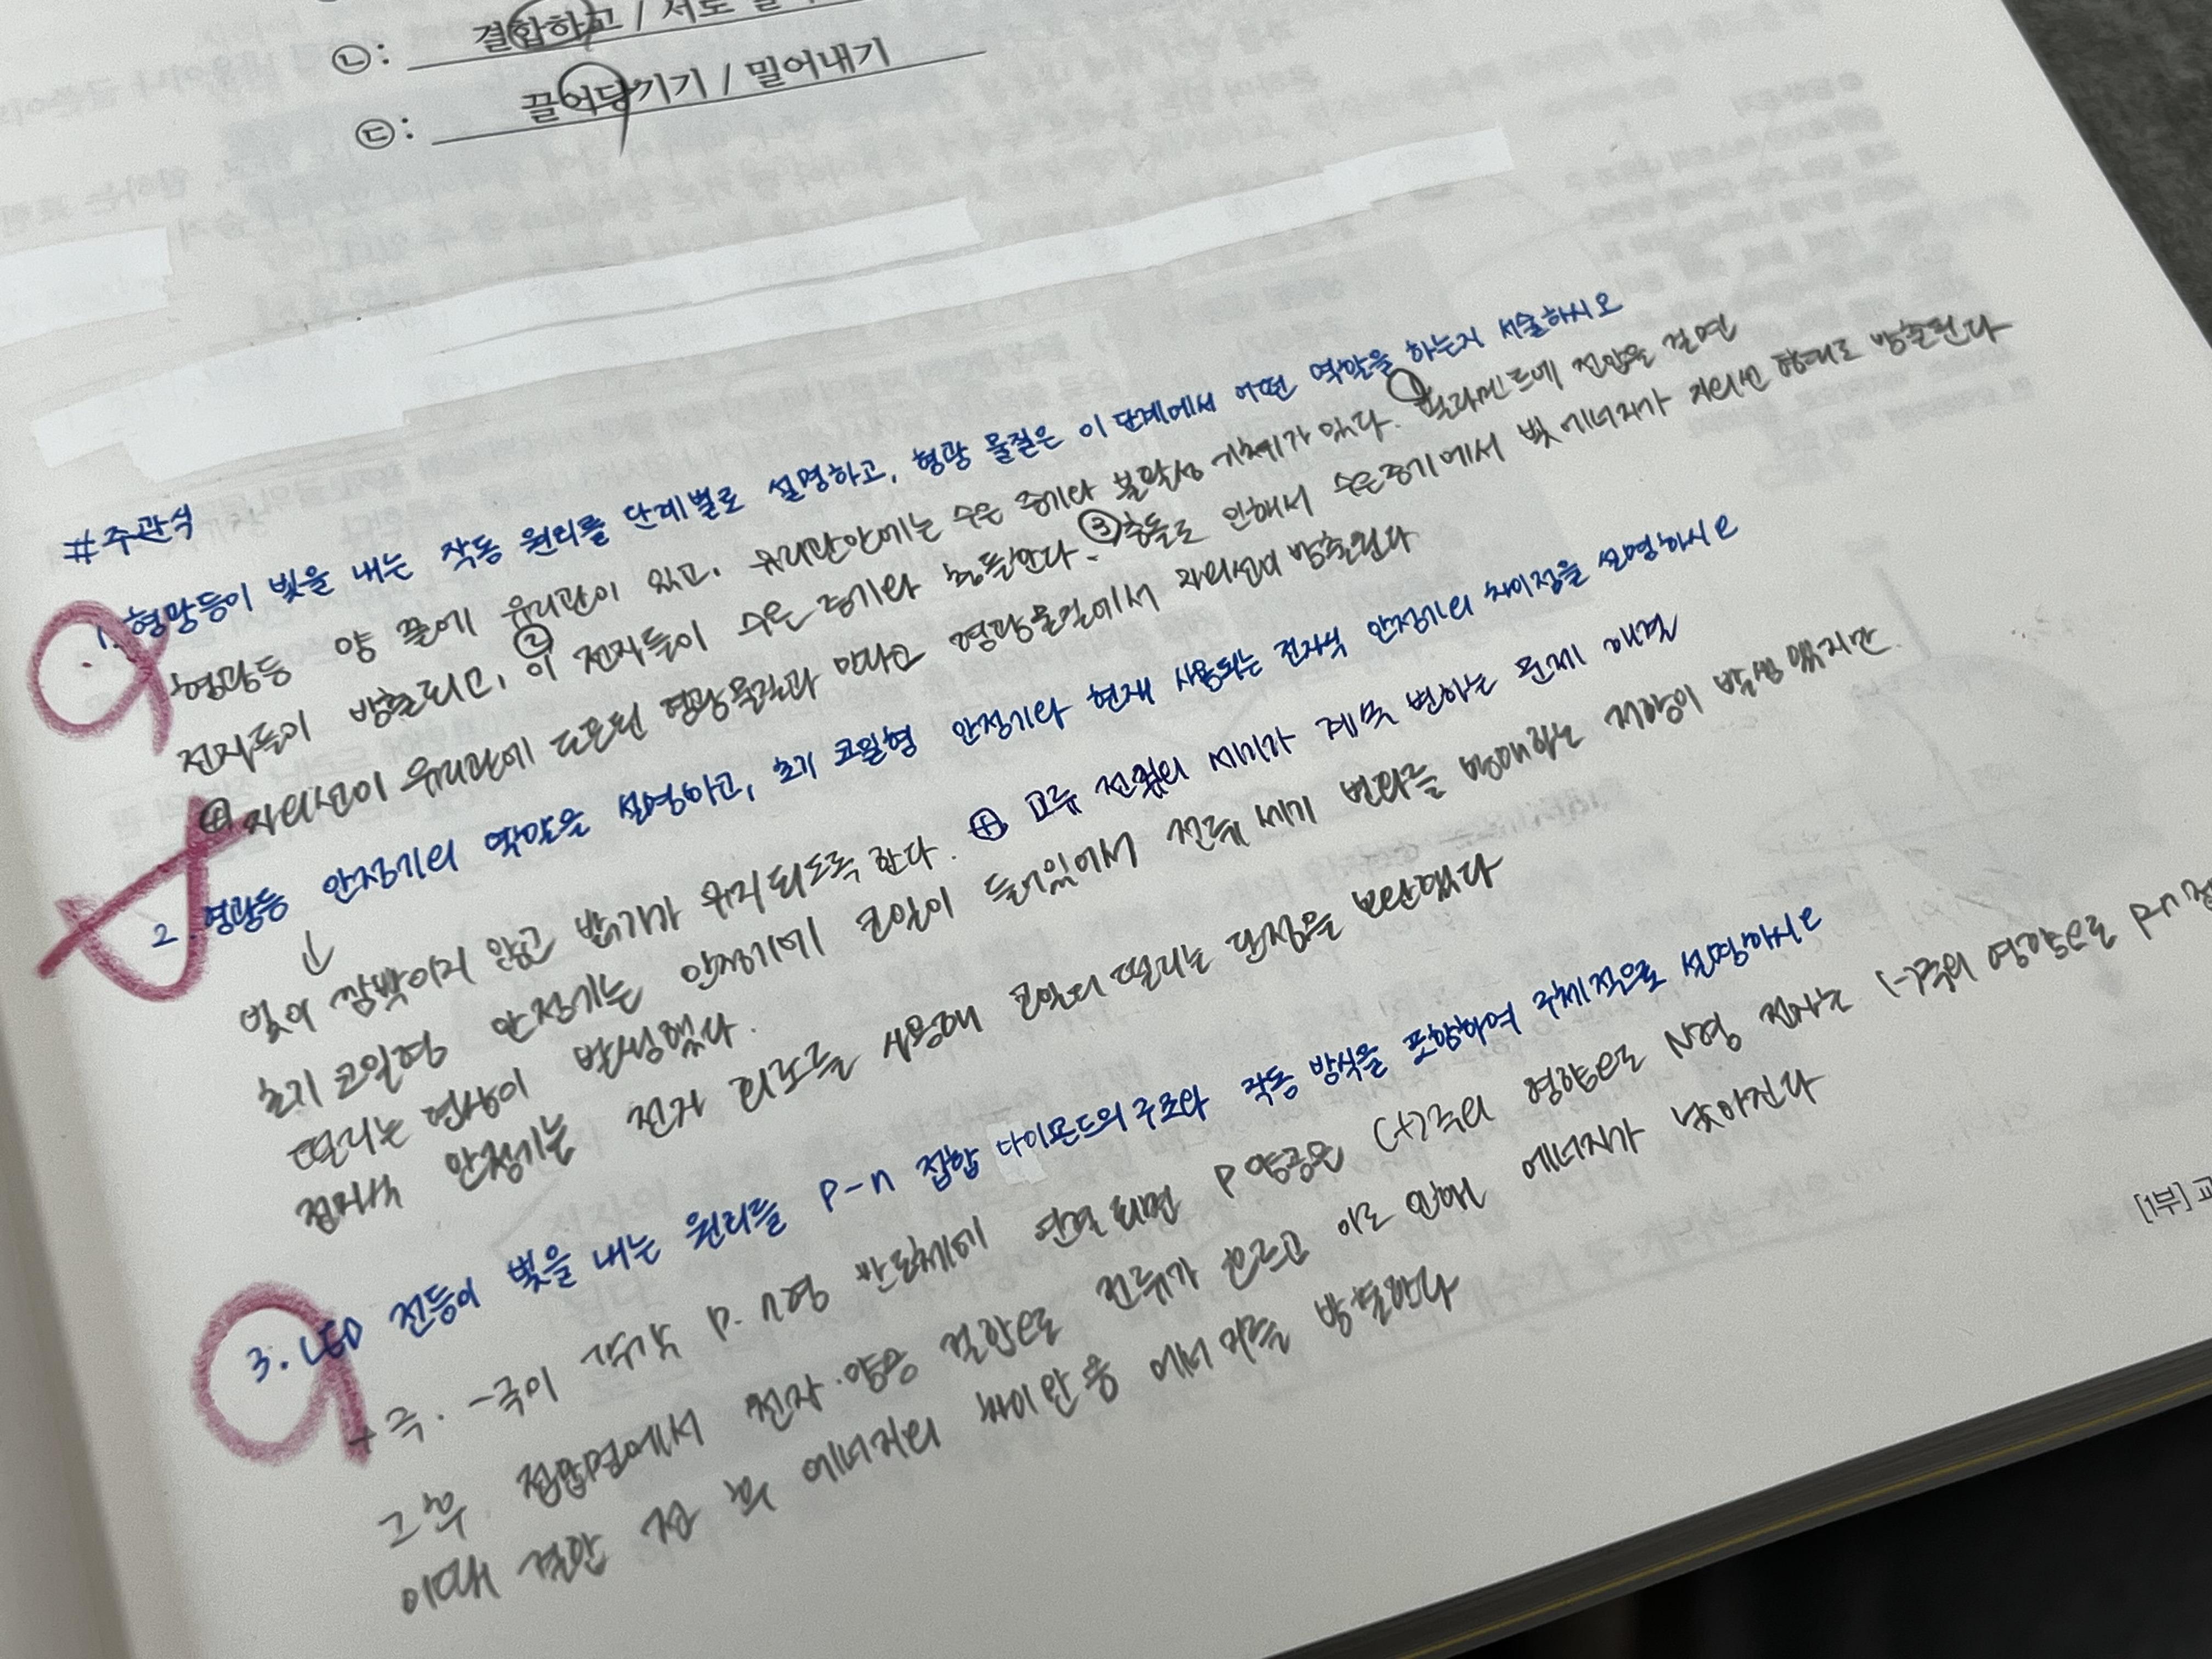 ㉡: 결합하고 / 서로
㉢: 끌어당기기 / 밀어내기
#주관식
1. 형광등이 빛을 내는 작동 원리를 단계별로 설명하고, 형광 물질은 이 단계에서 어떤 역할을 하는지 서술하시오
형광등 양 끝에 유리관이 있고, 유리관안에는 수은 증기와 불활성 기체가 있다. ① 필라멘트에 전압을 걸면
전자들이 방출되고, ② 이 전자들이 수은 증기와 충돌한다. ③ 충돌로 인해서 수은증기에서 빛에너지가 자외선 형태로 방출된다
④ 자외선이 유리관에 도포된 형광물질과 만나고 형광물질에서 자외선이 방출된다
2. 형광등 안정기의 역할을 설명하고, 초기 코일형 안정기와 현재 사용되는 전자식 안정기의 차이점을 설명하시오
↓
빛이 깜박이지 않고 밝기가 유지되도록 한다. ⊕ 교류 전류의 세기가 계속 변하는 문제 해결
초기 코일형 안정기는 안정기에 코일이 들어있어서 전류 세기 변화를 방해하는 저항이 발생했지만
떨리는 현상이 발생했다.
안정기는 전자 회로를 사용해 코일의 떨리는 단점을 보완했다
3. LED 전등이 빛을 내는 원리를 P-n 접합 다이오드의 구조와 작동 방식을 포함하여 구체적으로 설명하시오
+극. -극이 각각 P. n형 반도체에 연결되면 P 양공은 (+)극의 영향으로 N형 전자는 (-)극의 영향으로 P-n접
그 후. 접합면에서 전자·양공 결합으로 전류가 흐르고 이로 인해 에너지가 낮아진다
이때 결합 전 후 에너지의 차이만큼 에너지를 방출한다
[1부] 교